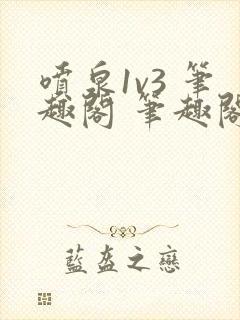 噴泉1v3 筆
趣閣 筆趣閣
藍盔之戀